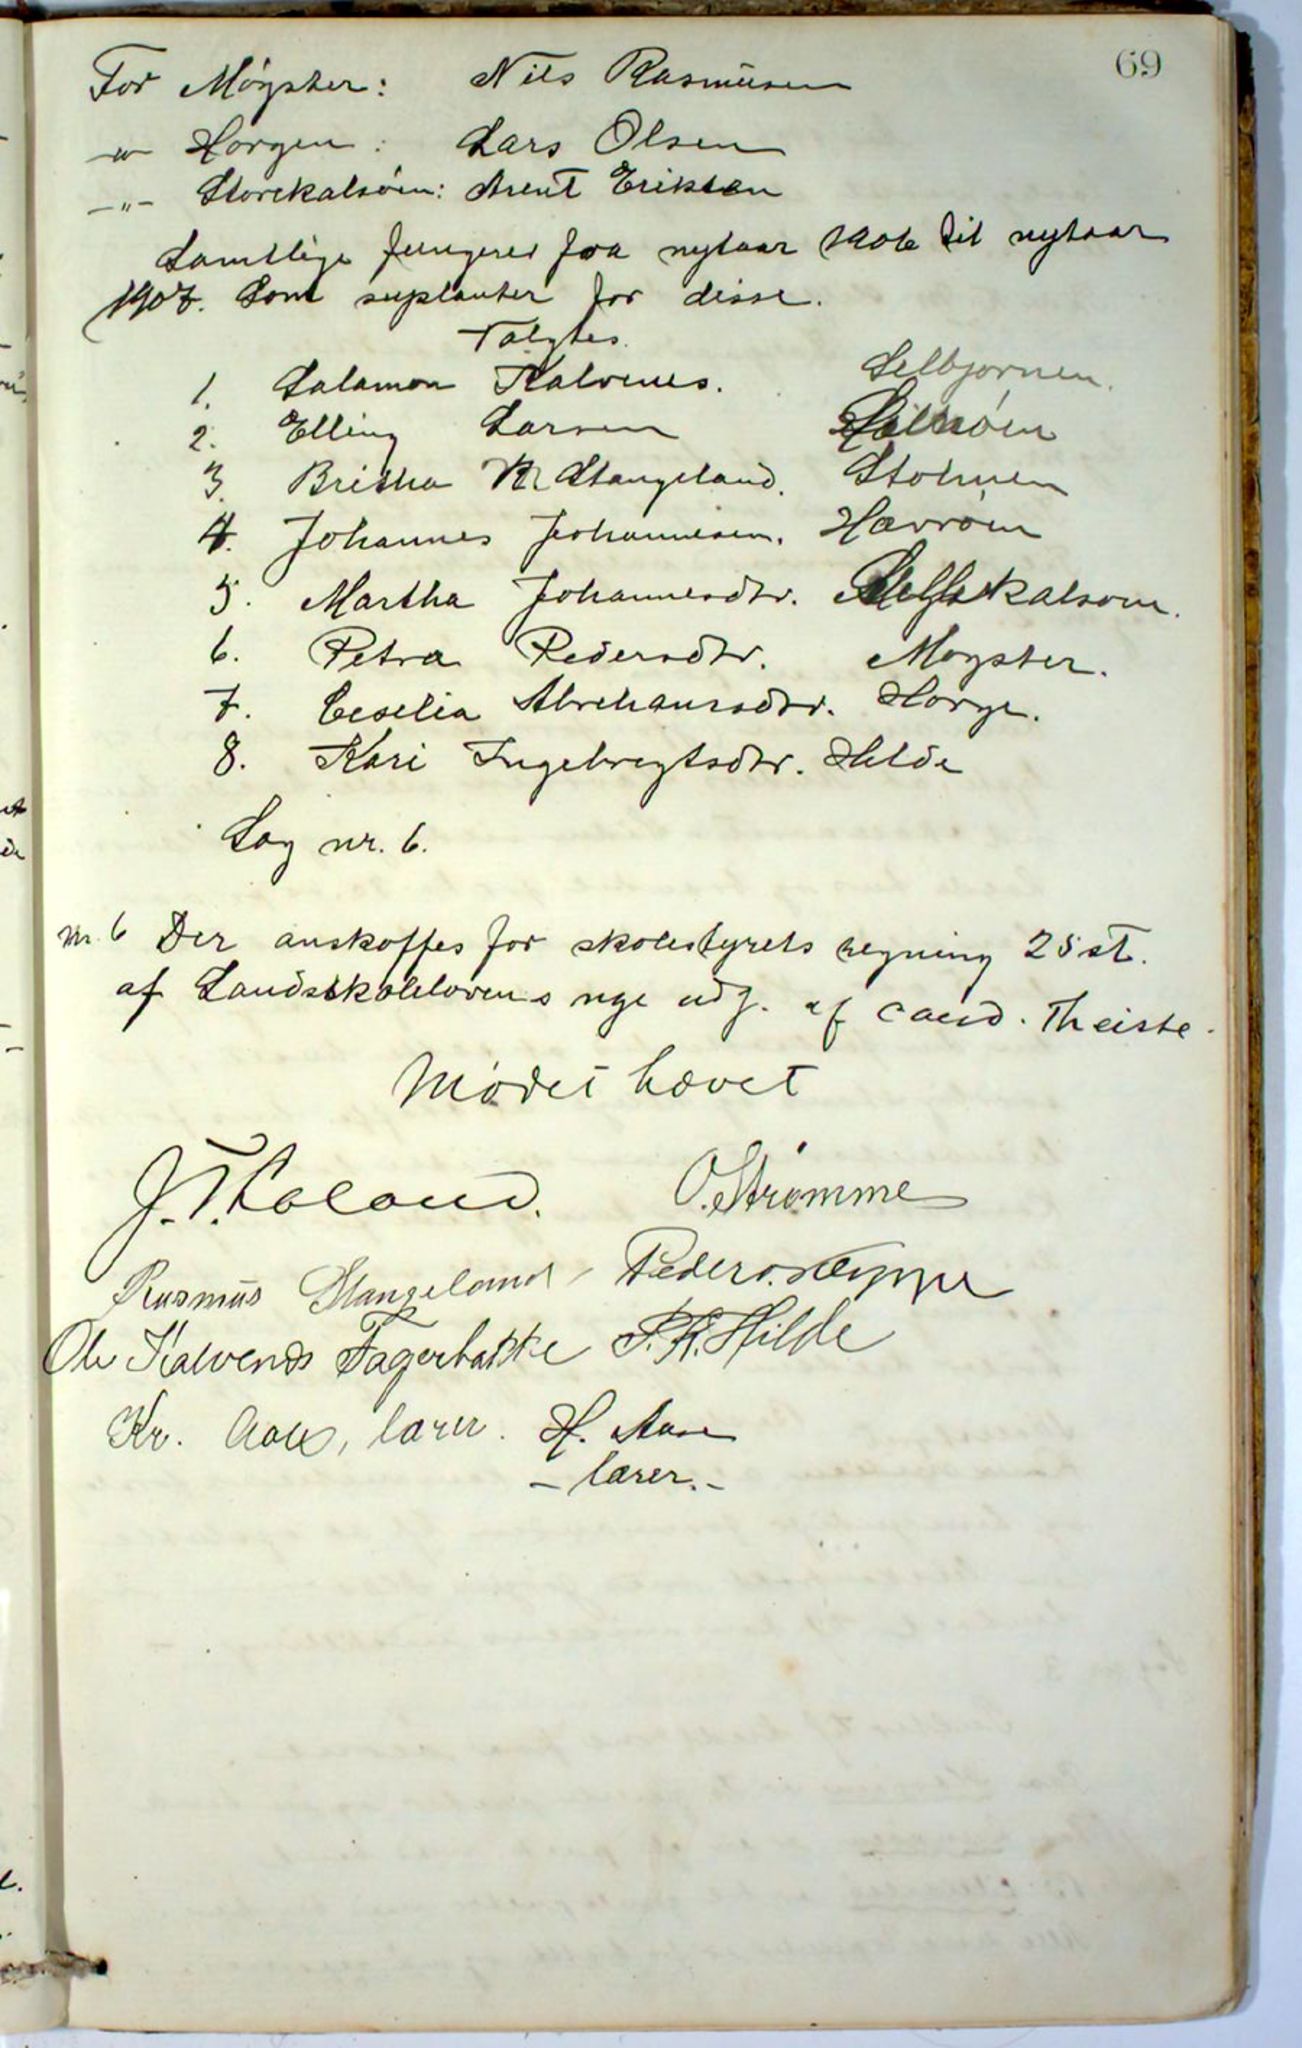 69
For Møgster: Nils Rasmusen
-"- Horgen: Lars Olsen
-"- Storekalsøen: Arent Eriksen
Samtlige fungerer fra nytaar 1906 til nytaar
1907. Som suplanter for disse.
Valgtes.
1. Salamon Kalvenes. Selbjornen.
2. Elling Larsen
3. Britha R. Stangeland. Stolmen
4. Johannes Johannesen. Hævrøen
5. Martha Johannesdtr. kalsoen.
6. Petra Pedersdtr. Mogster.
7. Ceselia Abrehamsdtr. Horge.
8. Kari Ingebregtsdtr. Hilde
Sag nr. 6.
Nr. 6 Der anskaffes for skolestyrets regning 25 st.
af Landsskolelovens nye udg. af cand. Theiste.
Mødet hævet
J. T. Kaland. O. Strømme
Rasmus Stangeland Peder O.
Ole Kalvenes Fagerbakke P. K. Hilde
Kr. lærer. H. Aase
- lærer. -